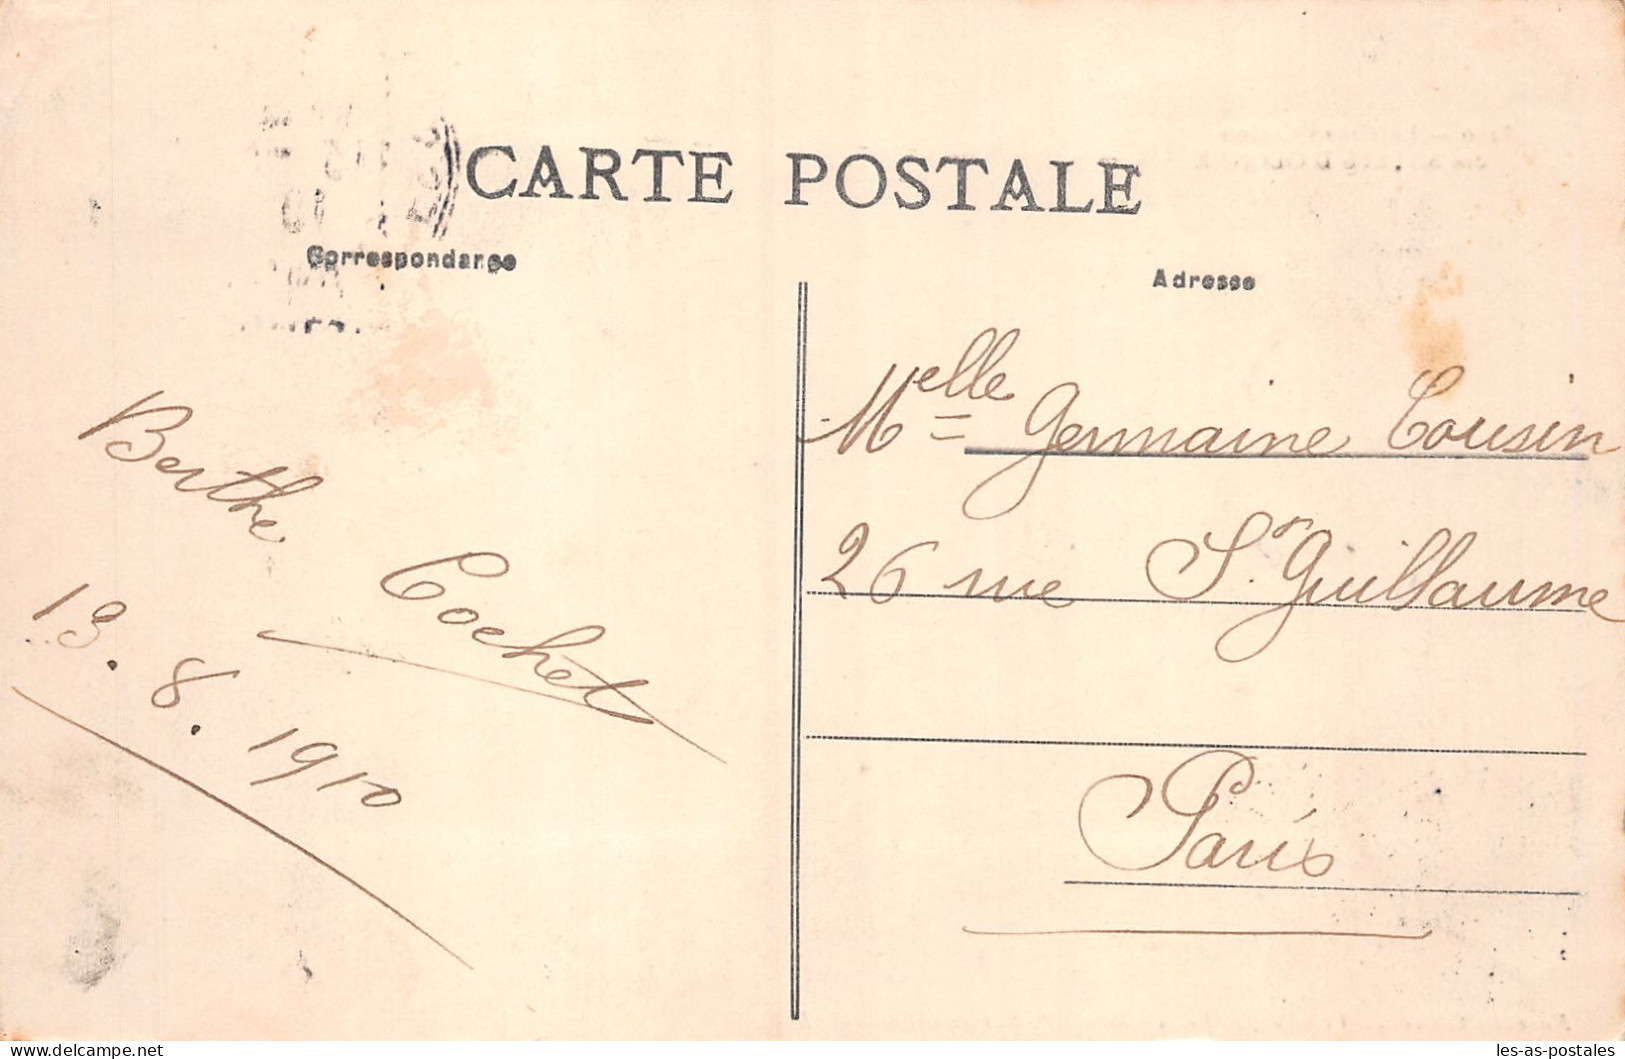 CARTE POSTALE
Correspondance
Adresse
Berthe Cochet
13.8.1910
Melle Germaine Cousin
26 rue St Guillaume
Paris
delcampe.net
les-as-postales